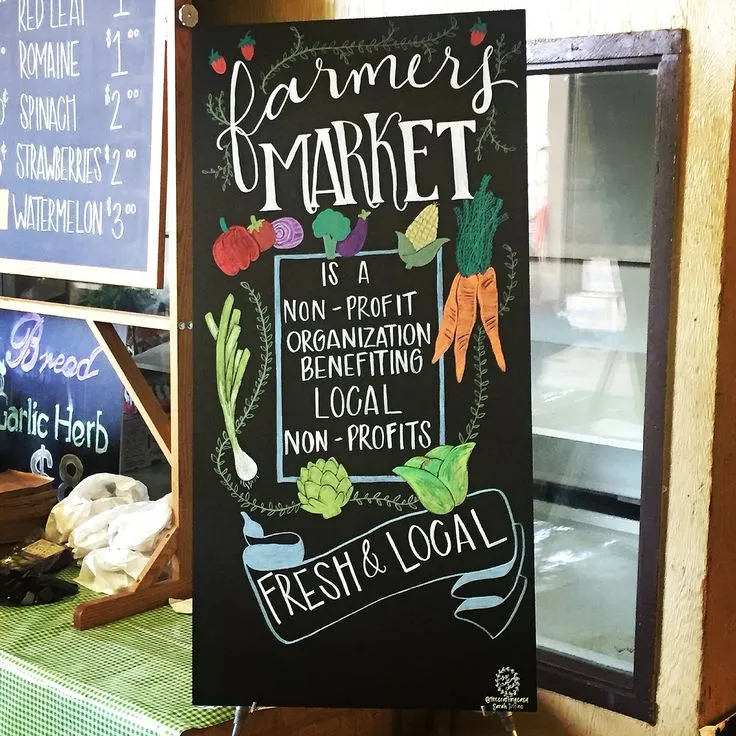 RED LEAF 1
ROMAINE $1.00
SPINACH $2.00
STRAWBERRIES $2.00
WATERMELON $3.00
Bread
Garlic Herb
$8
farmers
MARKET
IS A
NON-PROFIT
ORGANIZATION
BENEFITING
LOCAL
NON-PROFITS
FRESH & LOCAL